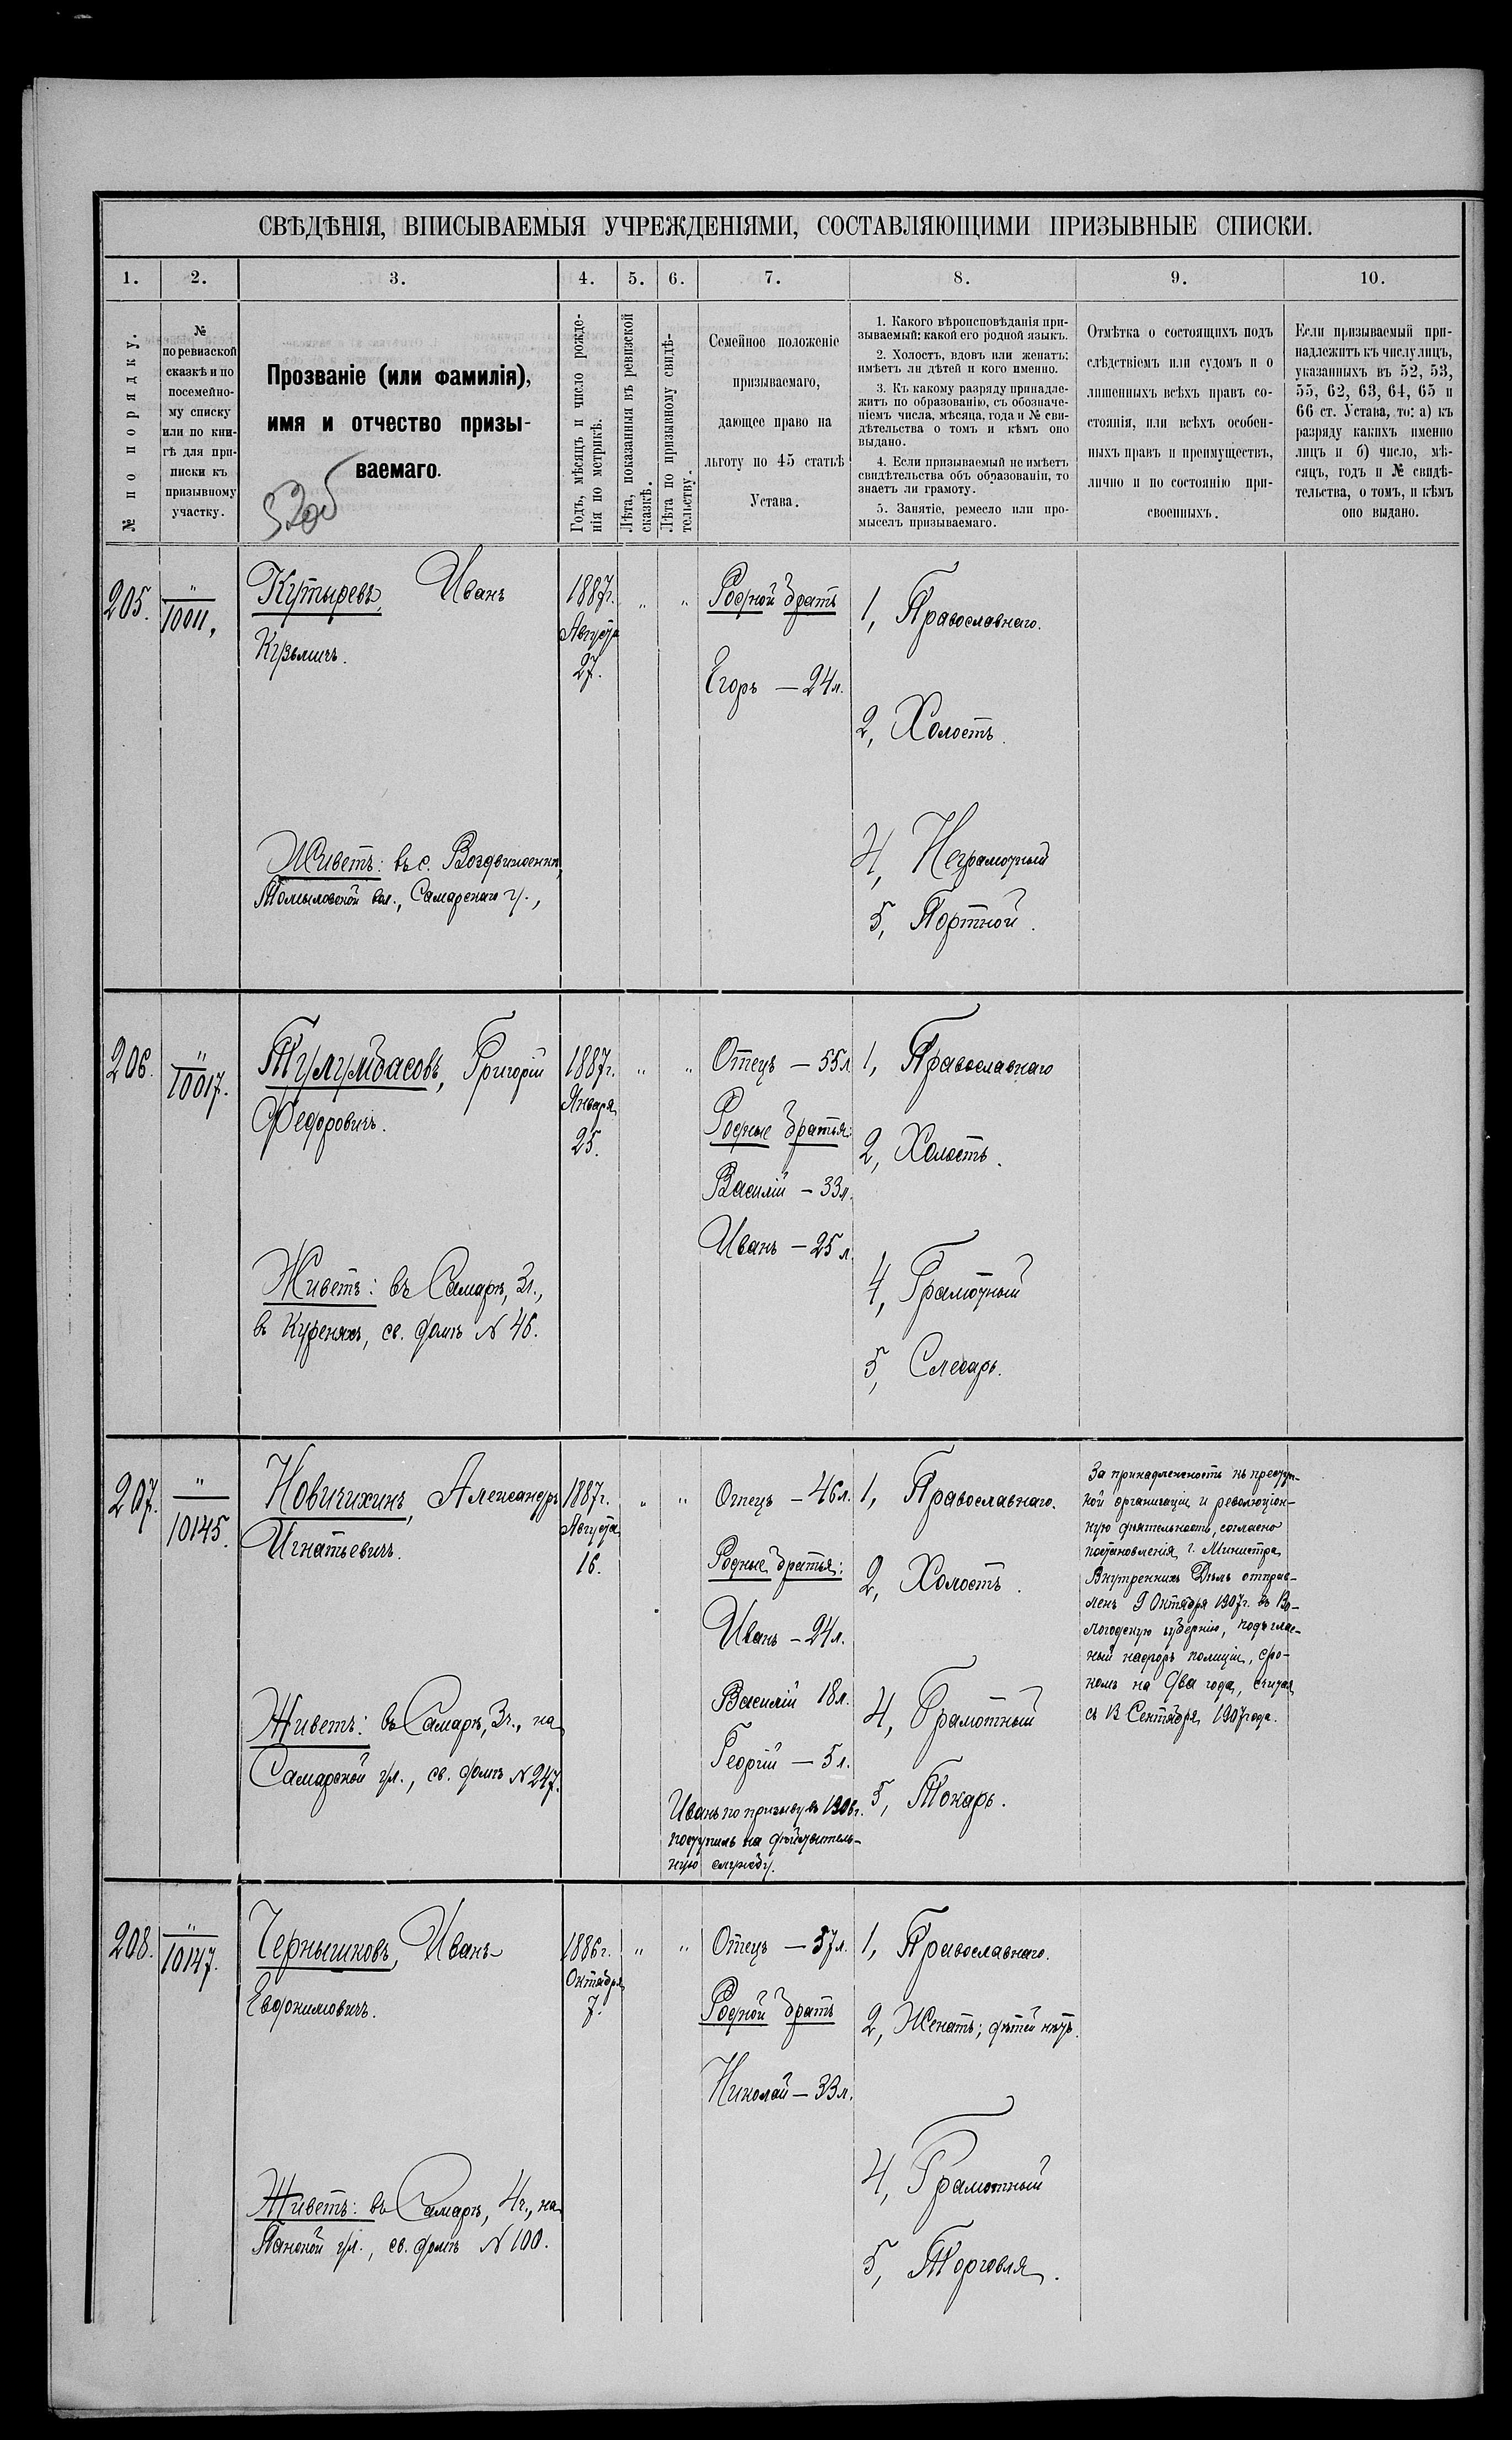 СВѢДѢНІЯ, ВПИСЫВАЕМЫЯ УЧРЕЖДЕНІЯМИ, СОСТАВЛЯЮЩИМИ ПРИЗЫВНЫЕ СПИСКИ.
1. 2. 3. 4. 5. 6. 7. 8. 9. 10.
№ по порядку.
№
по ревизской
сказкѣ и по
посемейно-
му списку
или по кни-
гѣ для при-
писки къ
призывному
участку.
Прозваніе (или фамилія),
имя и отчество призы-
ваемаго.
Годъ, мѣсяцъ и число рожде-
нія по метрикѣ.
Лѣта, показанныя въ ревизской
сказкѣ.
Лѣта по призывному свидѣ-
тельству.
Семейное положеніе
призываемаго,
дающее право на
льготу по 45 статьѣ
Устава.
1. Какого вѣроисповѣданія при-
зываемый: какой его родной языкъ.
2. Холостъ, вдовъ или женатъ:
имѣетъ ли дѣтей и кого именно.
3. Къ какому разряду принадле-
житъ по образованію, съ обозначе-
ніемъ числа, мѣсяца, года и № сви-
дѣтельства о томъ и кѣмъ оно
выдано.
4. Если призываемый не имѣетъ
свидѣтельства объ образованіи, то
знаетъ ли грамоту.
5. Занятіе, ремесло или про-
мыселъ призываемаго.
Отмѣтка о состоящихъ подъ
слѣдствіемъ или судомъ и о
лишенныхъ всѣхъ правъ со-
стоянія, или всѣхъ особен-
ныхъ правъ и преимуществъ,
лично и по состоянію при-
своенныхъ.
Если призываемый при-
надлежитъ къ числу лицъ,
указанныхъ въ 52, 53,
55, 62, 63, 64, 65 и
66 ст. Устава, то: а) къ
разряду какихъ именно
лицъ и б) число, мѣ-
сяцъ, годъ и № свидѣ-
тельства, о томъ, и кѣмъ
оно выдано.
205.
"
10011,
Кутыревъ, Иванъ
Кузьмичъ.
Живетъ: въ с. Воздвиженкѣ,
Томыловской вол., Самарскаго у.,
1887г.
Августа
27.
" "
Родной братъ
Егоръ — 24 л.
1, Православнаго.
2, Холостъ.
4, Неграмотный
5, Портной.
206.
"
10017.
Тулумбасовъ, Григорій
Федоровичъ.
Живетъ: въ Самарѣ, 3ч.,
въ Куреняхъ, св. домъ N 46.
1887г.
Января
25.
" "
Отецъ — 55 л.
Родные братья:
Василій — 33 л.
Иванъ — 25 л.
1, Православнаго
2, Холостъ.
4, Грамотный
5, Слесарь.
207.
"
10145.
Новичихинъ, Александръ
Игнатьевичъ.
Живетъ: въ Самарѣ, 3ч., на
Самарской ул., св. домъ N 247.
1887г.
Августа
16.
" "
Отецъ — 46 л.
Родные братья:
Иванъ — 24 л.
Василій 18 л.
Георгій — 5 л.
Иванъ по призыву въ 1906г.
поступилъ на дѣйствитель-
ную службу.
1, Православнаго.
2, Холостъ.
4, Грамотный
5, Токарь.
За принадлежность къ преступ-
ной организаціи и революціон-
ную дѣятельность, согласно
постановленія г. Министра
Внутреннихъ Дѣлъ отправ-
ленъ 9 Октября 1907г. въ Во-
логодскую губернію, подъ глас-
ный надзоръ полиціи, сро-
комъ на два года, считая
съ 13 Сентября 1907 года.
208.
"
10147.
Чернышковъ, Иванъ
Евфимовичъ.
Живетъ: въ Самарѣ, 4ч., на
Панской ул., св. домъ N 100.
1886г.
Октября
7.
" "
Отецъ — 57 л.
Родной братъ
Николай — 33 л.
1, Православнаго.
2, Женатъ; дѣтей нѣтъ.
4, Грамотный
5, Торговля.